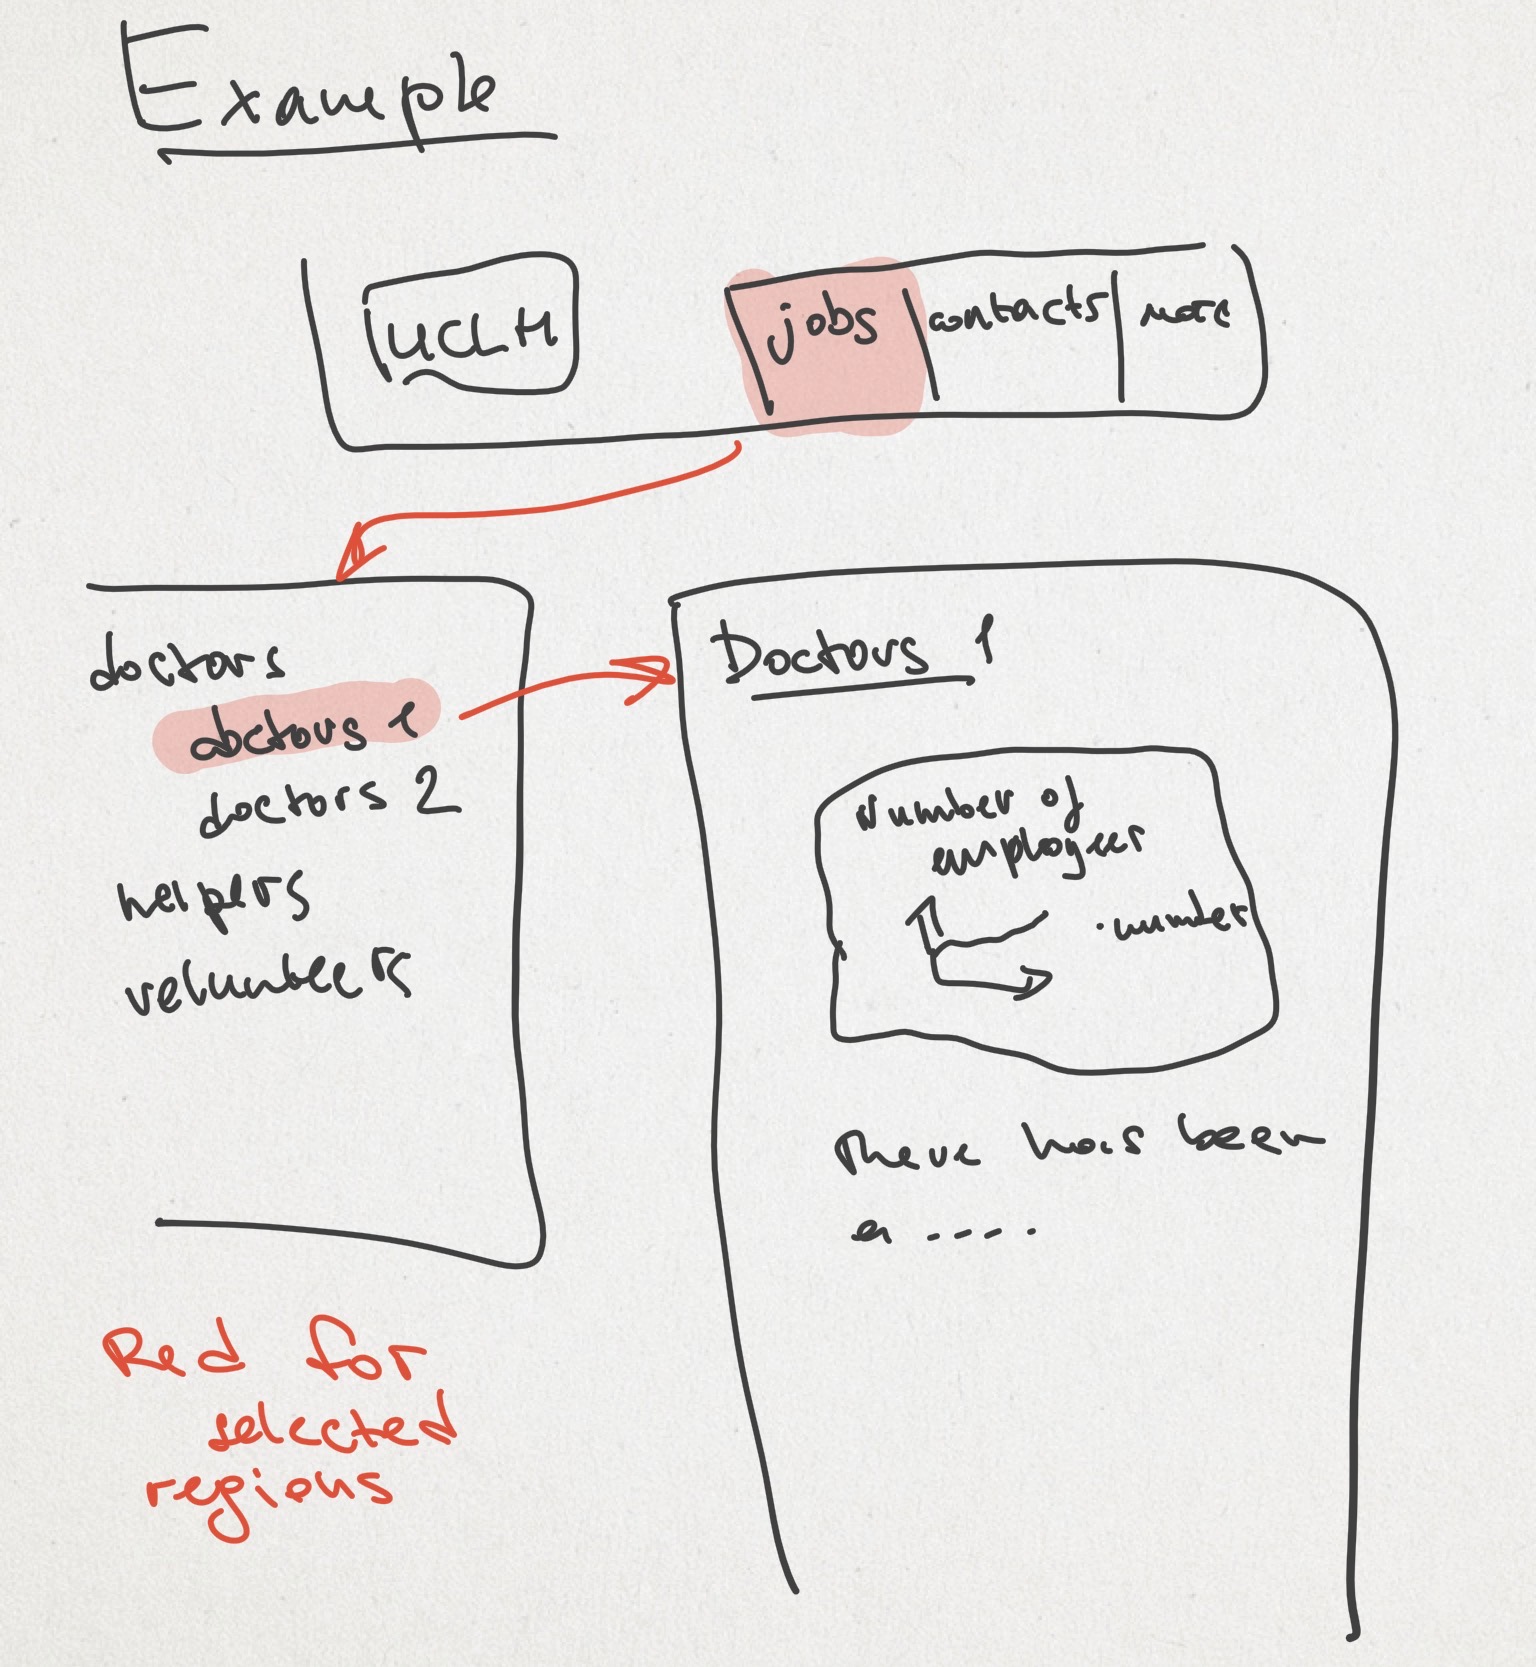 Example
UCLM
jobs
contacts
more
doctors
doctors 1
doctors 2
helpers
volunteers
Doctors 1
Number of
employees
number
There has been
a ....
Red for
selected
regions